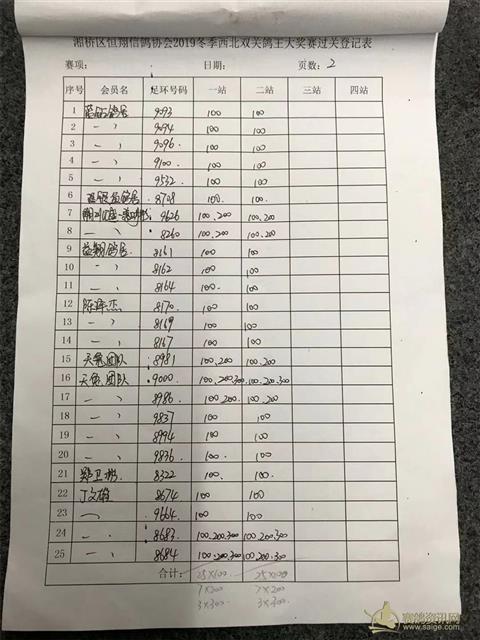 湘桥区恒翔信鸽协会2019冬季西北双关鸽王大奖赛过关登记表
赛项： 日期： 页数：2
序号 会员名 足环号码 一站 二站 三站 四站
1 9093 100 100
2 一 ） 9094 100 100
3 一 ） 9096 100 100
4 一 ） 9100 100 100
5 一 ） 9532 100 100
6 8708 100 100
7 9626 100.200 100.200
8 一 ） 8260 100.200 100.200
9 益翔鸽居 8161 100 100
10 一 ） 8162 100 100
11 一 ） 8164 100 100
12 陈泽杰 8170 100 100
13 一 ） 8169 100 100
14 一 ） 8167 100 100
15 团队 8981 100.200 100.200
16 团队 9000 100.200.300 100.200.300
17 一 ） 8986 100.200 100.200
18 一 ） 9837 100 100
19 一 ） 8994 100 100
20 一 ） 9836 100 100
21 郑卫彬 8322 100 100
22 丁文雄 8674 100 100
23 一 ） 9664 100 100
24 一 ） 8683 100.200.300 100.200.300
25 一 ） 8684 100.200.300 100.200.300
合计： 25×100 25×100
7×200 7×200
3×300 3×300
赛鸽资讯网
www.saige.com